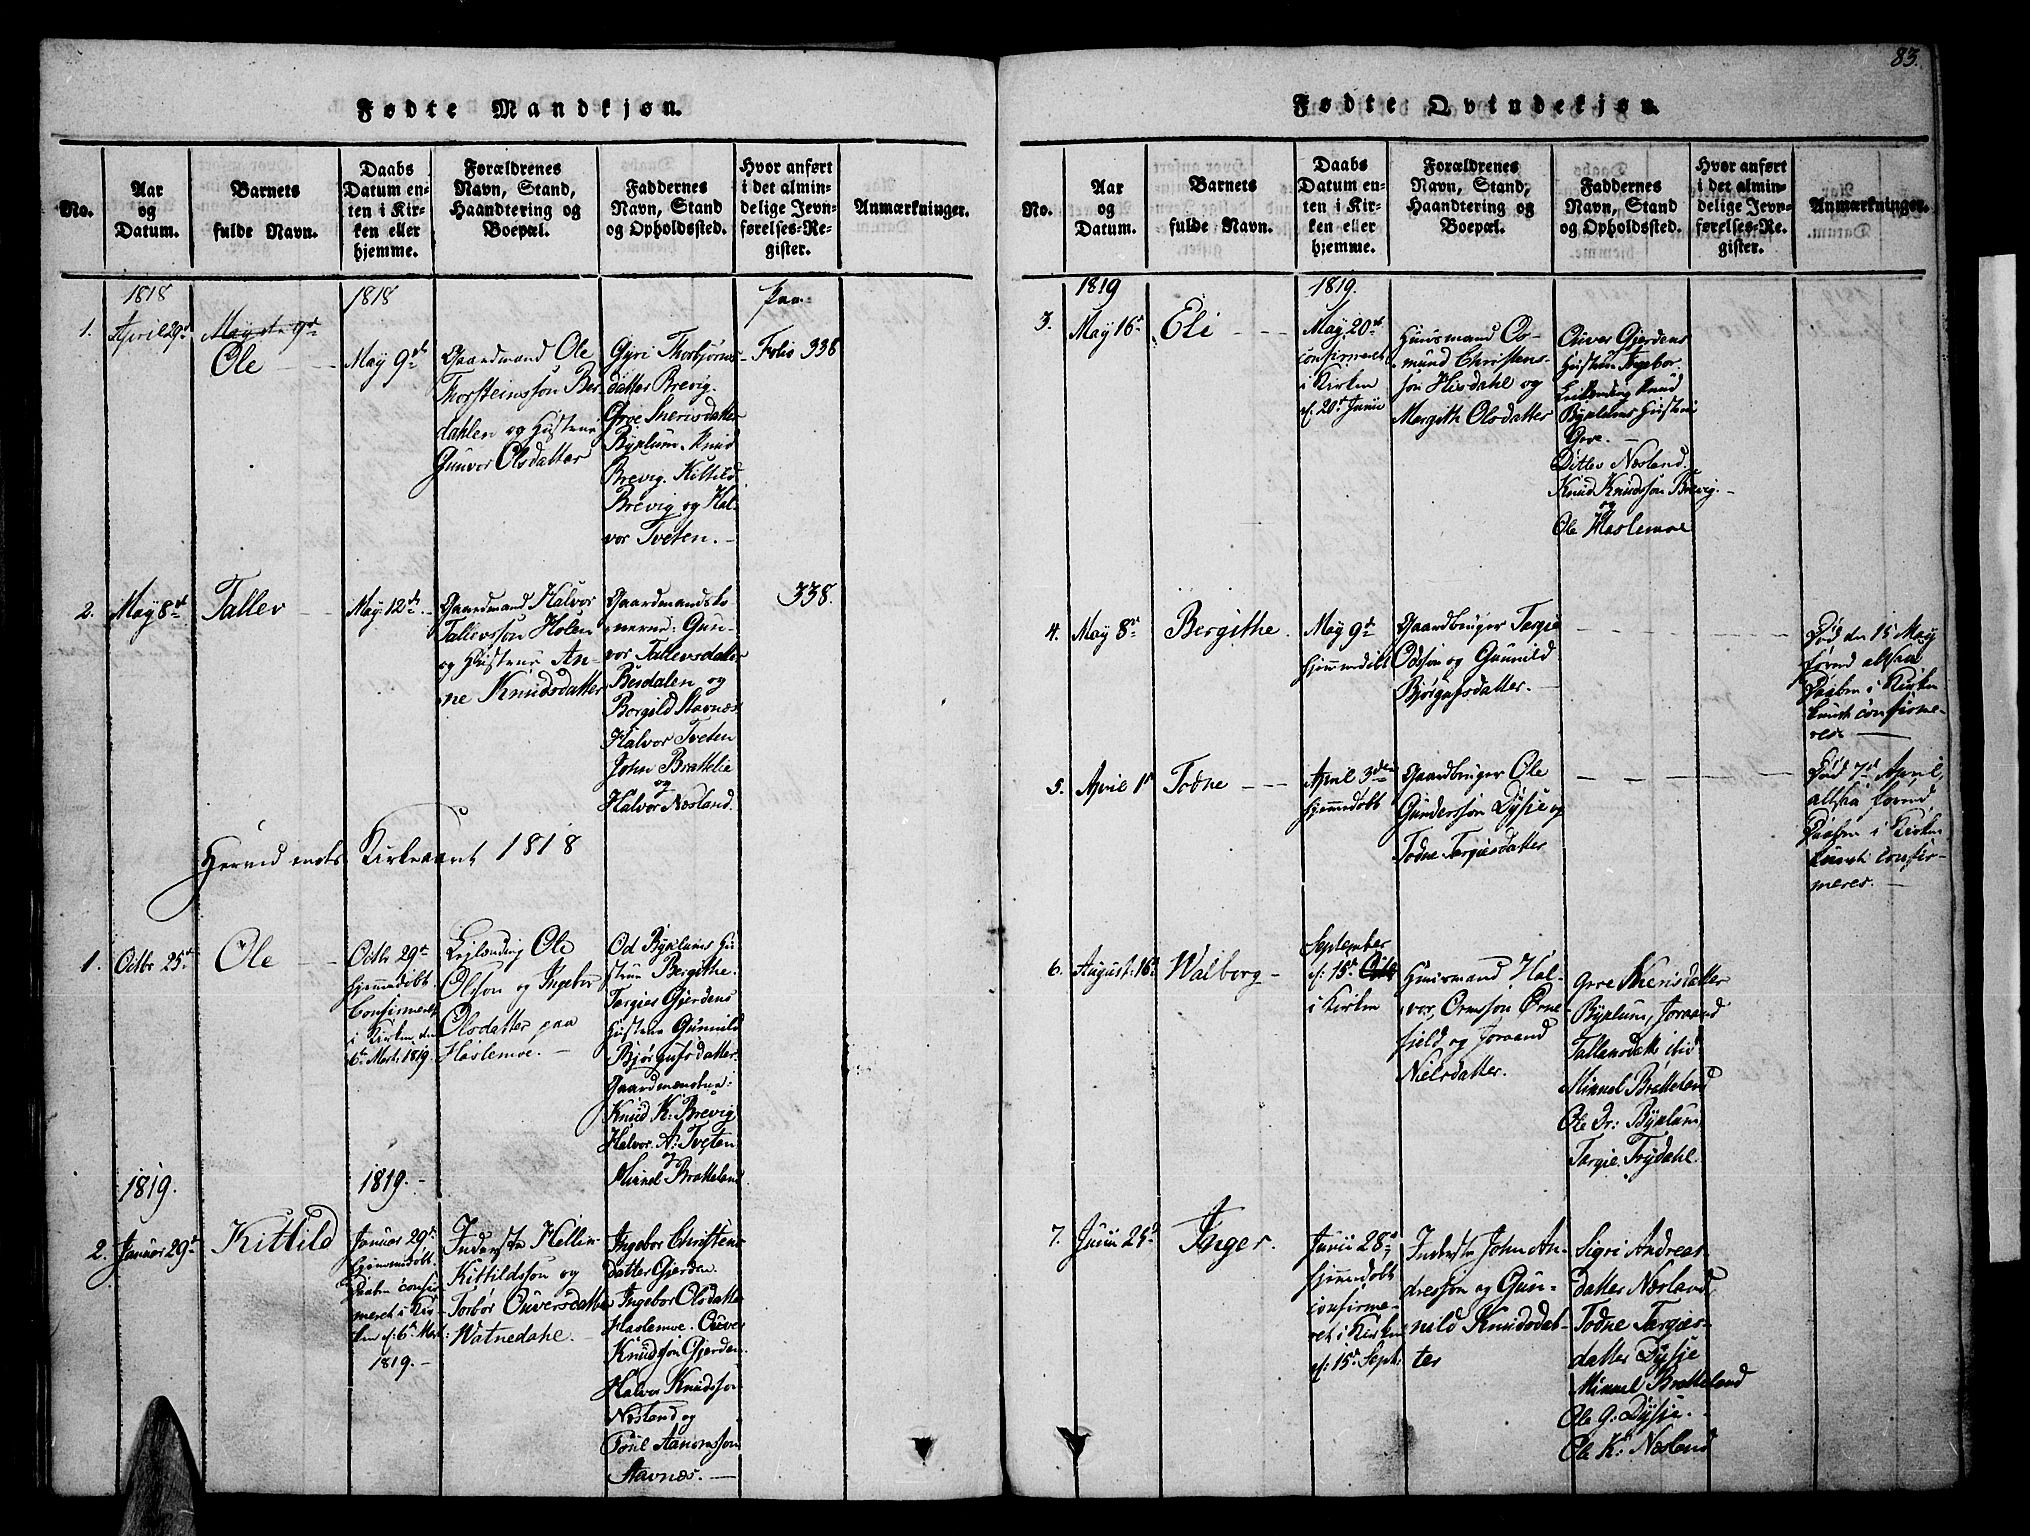 83.
Fødte Mandkjøn.
No.
Aar
og
Datum.
Barnets
fulde Navn.
Daabs
Datum en-
ten i Kir-
ken eller
hjemme.
Forældrenes
Navn, Stand,
Haandtering og
Boepæl.
Faddernes
Navn, Stand
og Opholdssted.
Hvor anført
i det almin-
delige Jevn-
førelses-Re-
gister.
Anmærkninger.
1818
1818
1.
April 29de
Ole
May 9de
Gaardmand Ole
Thorsteinssøn Bes
dahlen og Hustrue
Gunvor Olsdatter
Gyri Thorbjørns
datter Brevig.
Byklum. Knud
Brevig. Kittild
Brevig og Hal
vor Tveten.
Folio 338
2.
May 8de
Tallev
May 12de
Gaardmand Halvor
Tallevssøn Holen
og Hustrue An-
ne Knudsdatter
Gun-
vor Tallevsdatter
Besdalen og
Borgild Stavnes
Halvor Tveten
John Brattelie
og
Halvor Næsland.
338.
Herved endes Kirkeaaret 1818
1.
Octbr 25de
Ole
Octbr 29de
hjemmedøbt
Confirmeret
i Kirken den
6te Mart: 1819.
Leilænding Ole
Olssøn og Ingebor
Olsdatter paa
Haslemoe.
Od Byklums Hu
strue Bergithe.
Targies Gjerdens
Hustrue Gunnild
Bjørgufsdatter.
Knud K: Brevig
Halvor A: Tveten
og
Mikkel Bratteland
1819.
1819.
2.
Januar 29de
Kittild
Januar 29de
hjemmedøbt.
Daaben confir
meret i Kir-
ken d: 6te Mart:
1819.
Inderste Hellie
Kittildssøn og
Torbør Ouversdatter
Watnedahl.
Ingebor Christens
datter Gjerden.
Ingebor Olsdatter
Haslemoe. Ouver
Knudssøn Gjerden.
Halvor Knudssøn
Næsland og
Stavnæs.
Fødte Qvindekjøn.
No.
Aar
og
Datum.
Barnets
fulde Navn.
Daabs
Datum en-
ten i Kir-
ken eller
hjemme.
Forældrenes
Navn, Stand,
Haandtering og
Boepæl.
Faddernes
Navn, Stand
og Opholdssted.
Hvor anført
i det almin-
delige Jevn-
førelses-Re-
gister.
Anmærkninger.
1819
1819.
3.
May 16de
Eli
May 20de
confirmeret
i Kirken
d: 20de Junii
Huusmand Os-
mund Christens-
søn Hisdahl og
Margith Olsdatter
Ouver Gjerdens
Hustrue Ingebor
Knud
Byklums Hustrue
Gro.
Ditlev Næsland.
Knud Knudssøn Brevig.
og
Ole Haslemoe
4.
May 8de
Bergithe.
May 9de
hjemmedøbt
Gaardbruger Targie
Odssøn og Gunild
Bjørgufsdatter.
Død den 15 May
førend altsaa
Daaben i Kirken
kunde confirme-
res
5.
April 1de
Todne
April 3den
hjemmedøbt
Gaardbruger Ole
Gunderssøn Dysje og
Todne Targiesdatter
Død 7de April,
altsaa førend
Daaben i Kirken
kunde confir-
meres.
6.
August 16de
Walborg
September
d: 15de
i Kirken
Huusmand Hal-
vor Ormssøn Ørne
field og Joraand
Nielsdatter.
Byklum, Joraand
ibid:
Mikkel Bratteland
Ole Dr: Byklum
Targie Trydahl.
7.
Junii 25de
Inger.
Junii 28de
hjemmedøbt
confirme-
ret i Kirken
d: 15de Sept:
Inderste John An-
dressøn og Gun-
nild Knudsdat-
ter
Sigri Andreas-
datter Næsland,
Todne Targies-
datter Dysje
Mikkel Bratteland
Ole G: Dysje.
Ole K: Næsland